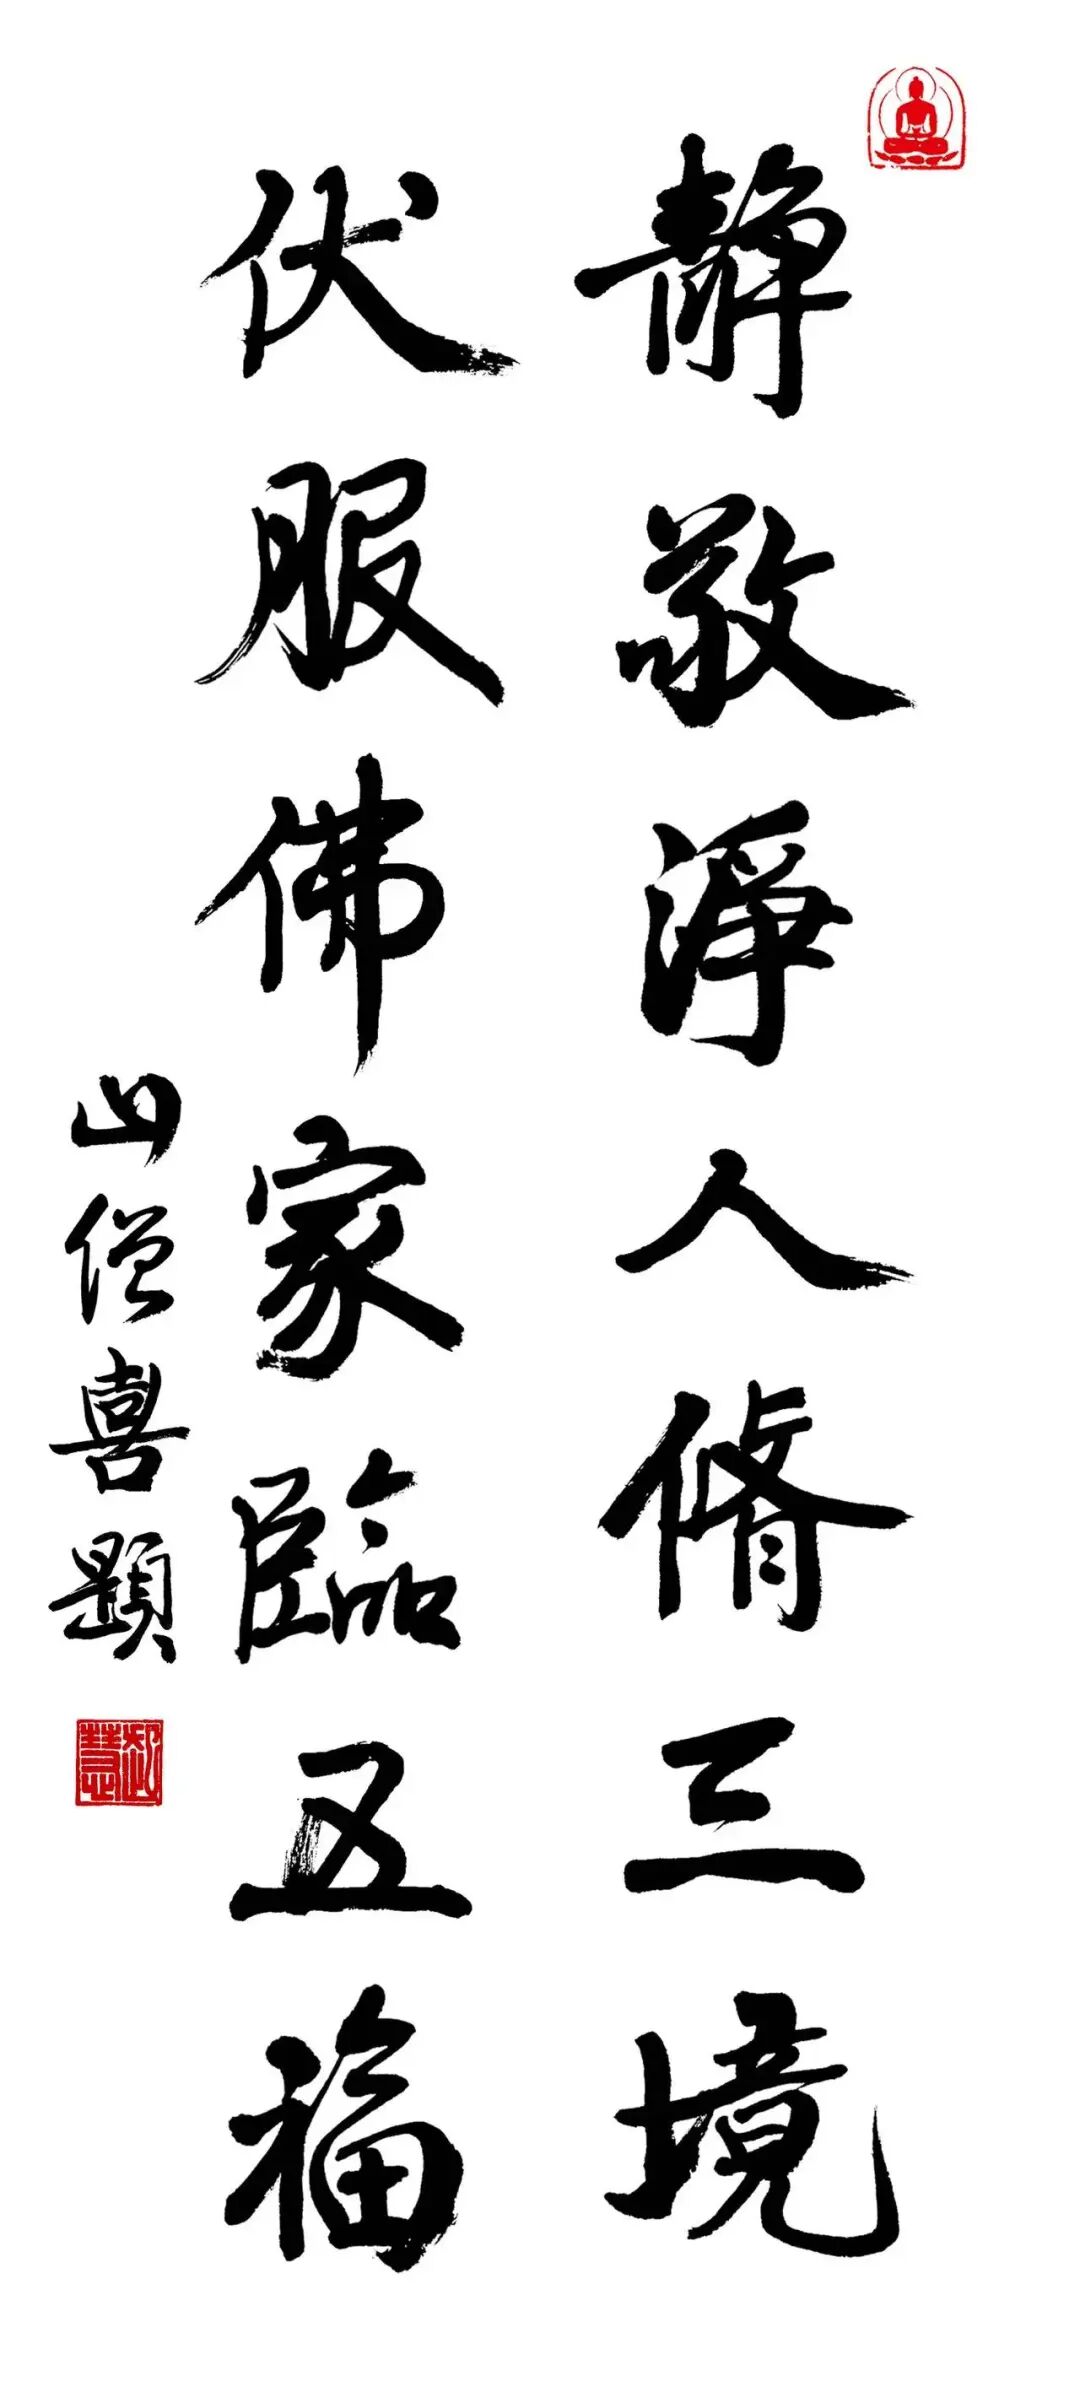 静敬淨人脩三境
伏服佛家臨五福
山僧喜題